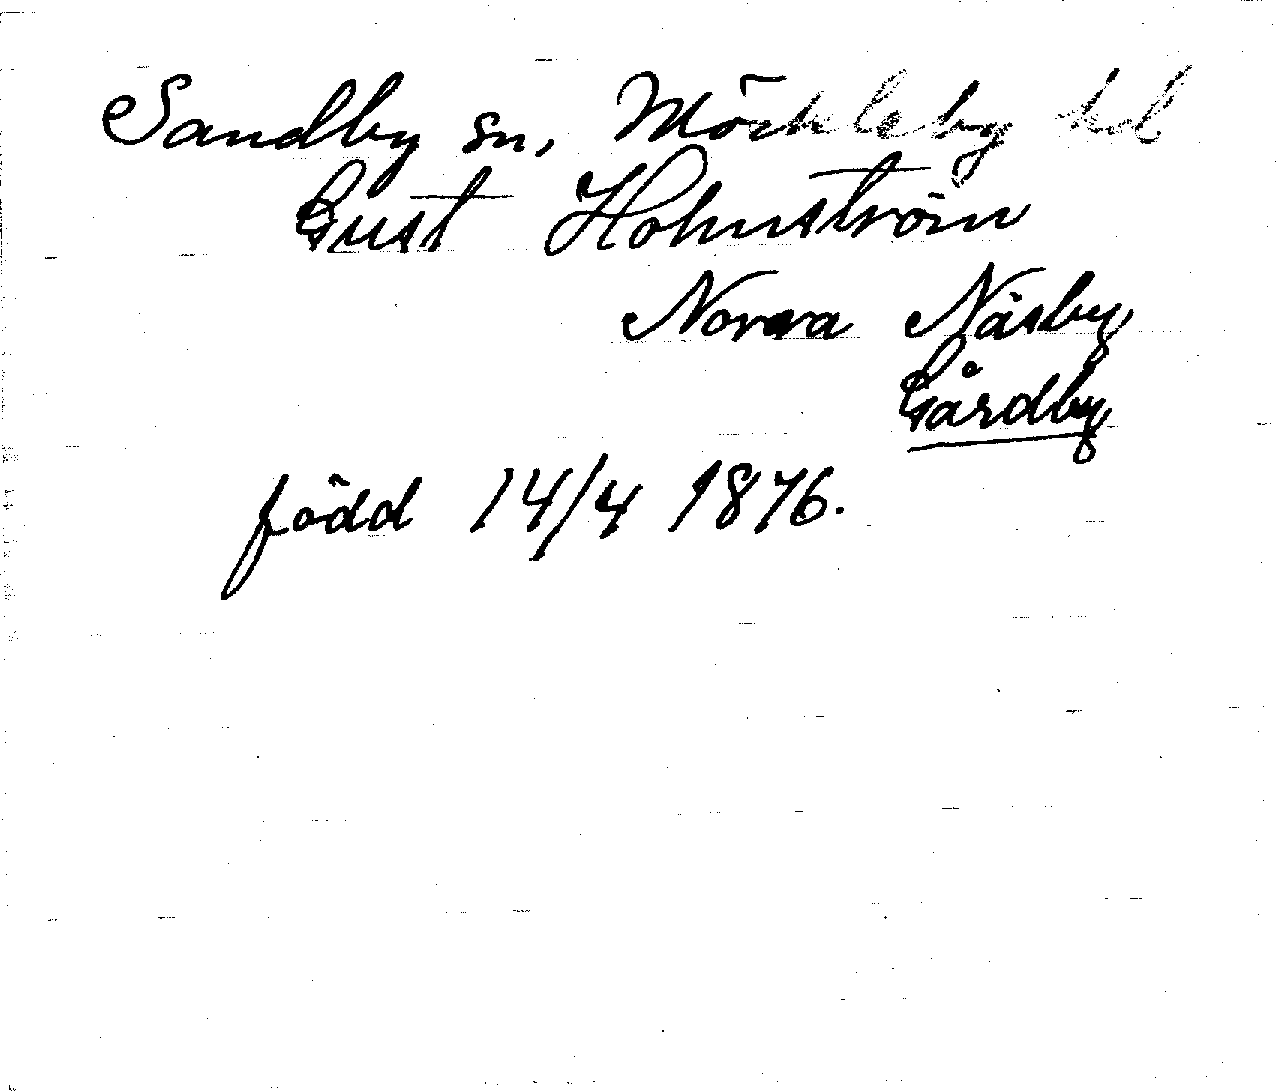 Sandby sn, Möckleby hd
Gust Holmström
Norra Näsby
Gårdby
född 14/4 1876.